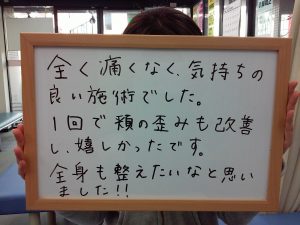 全く痛くなく、気持ちの
良い施術でした。
1回で頬の歪みも改善
し、嬉しかったです。
全身も整えたいなと思い
ました!!